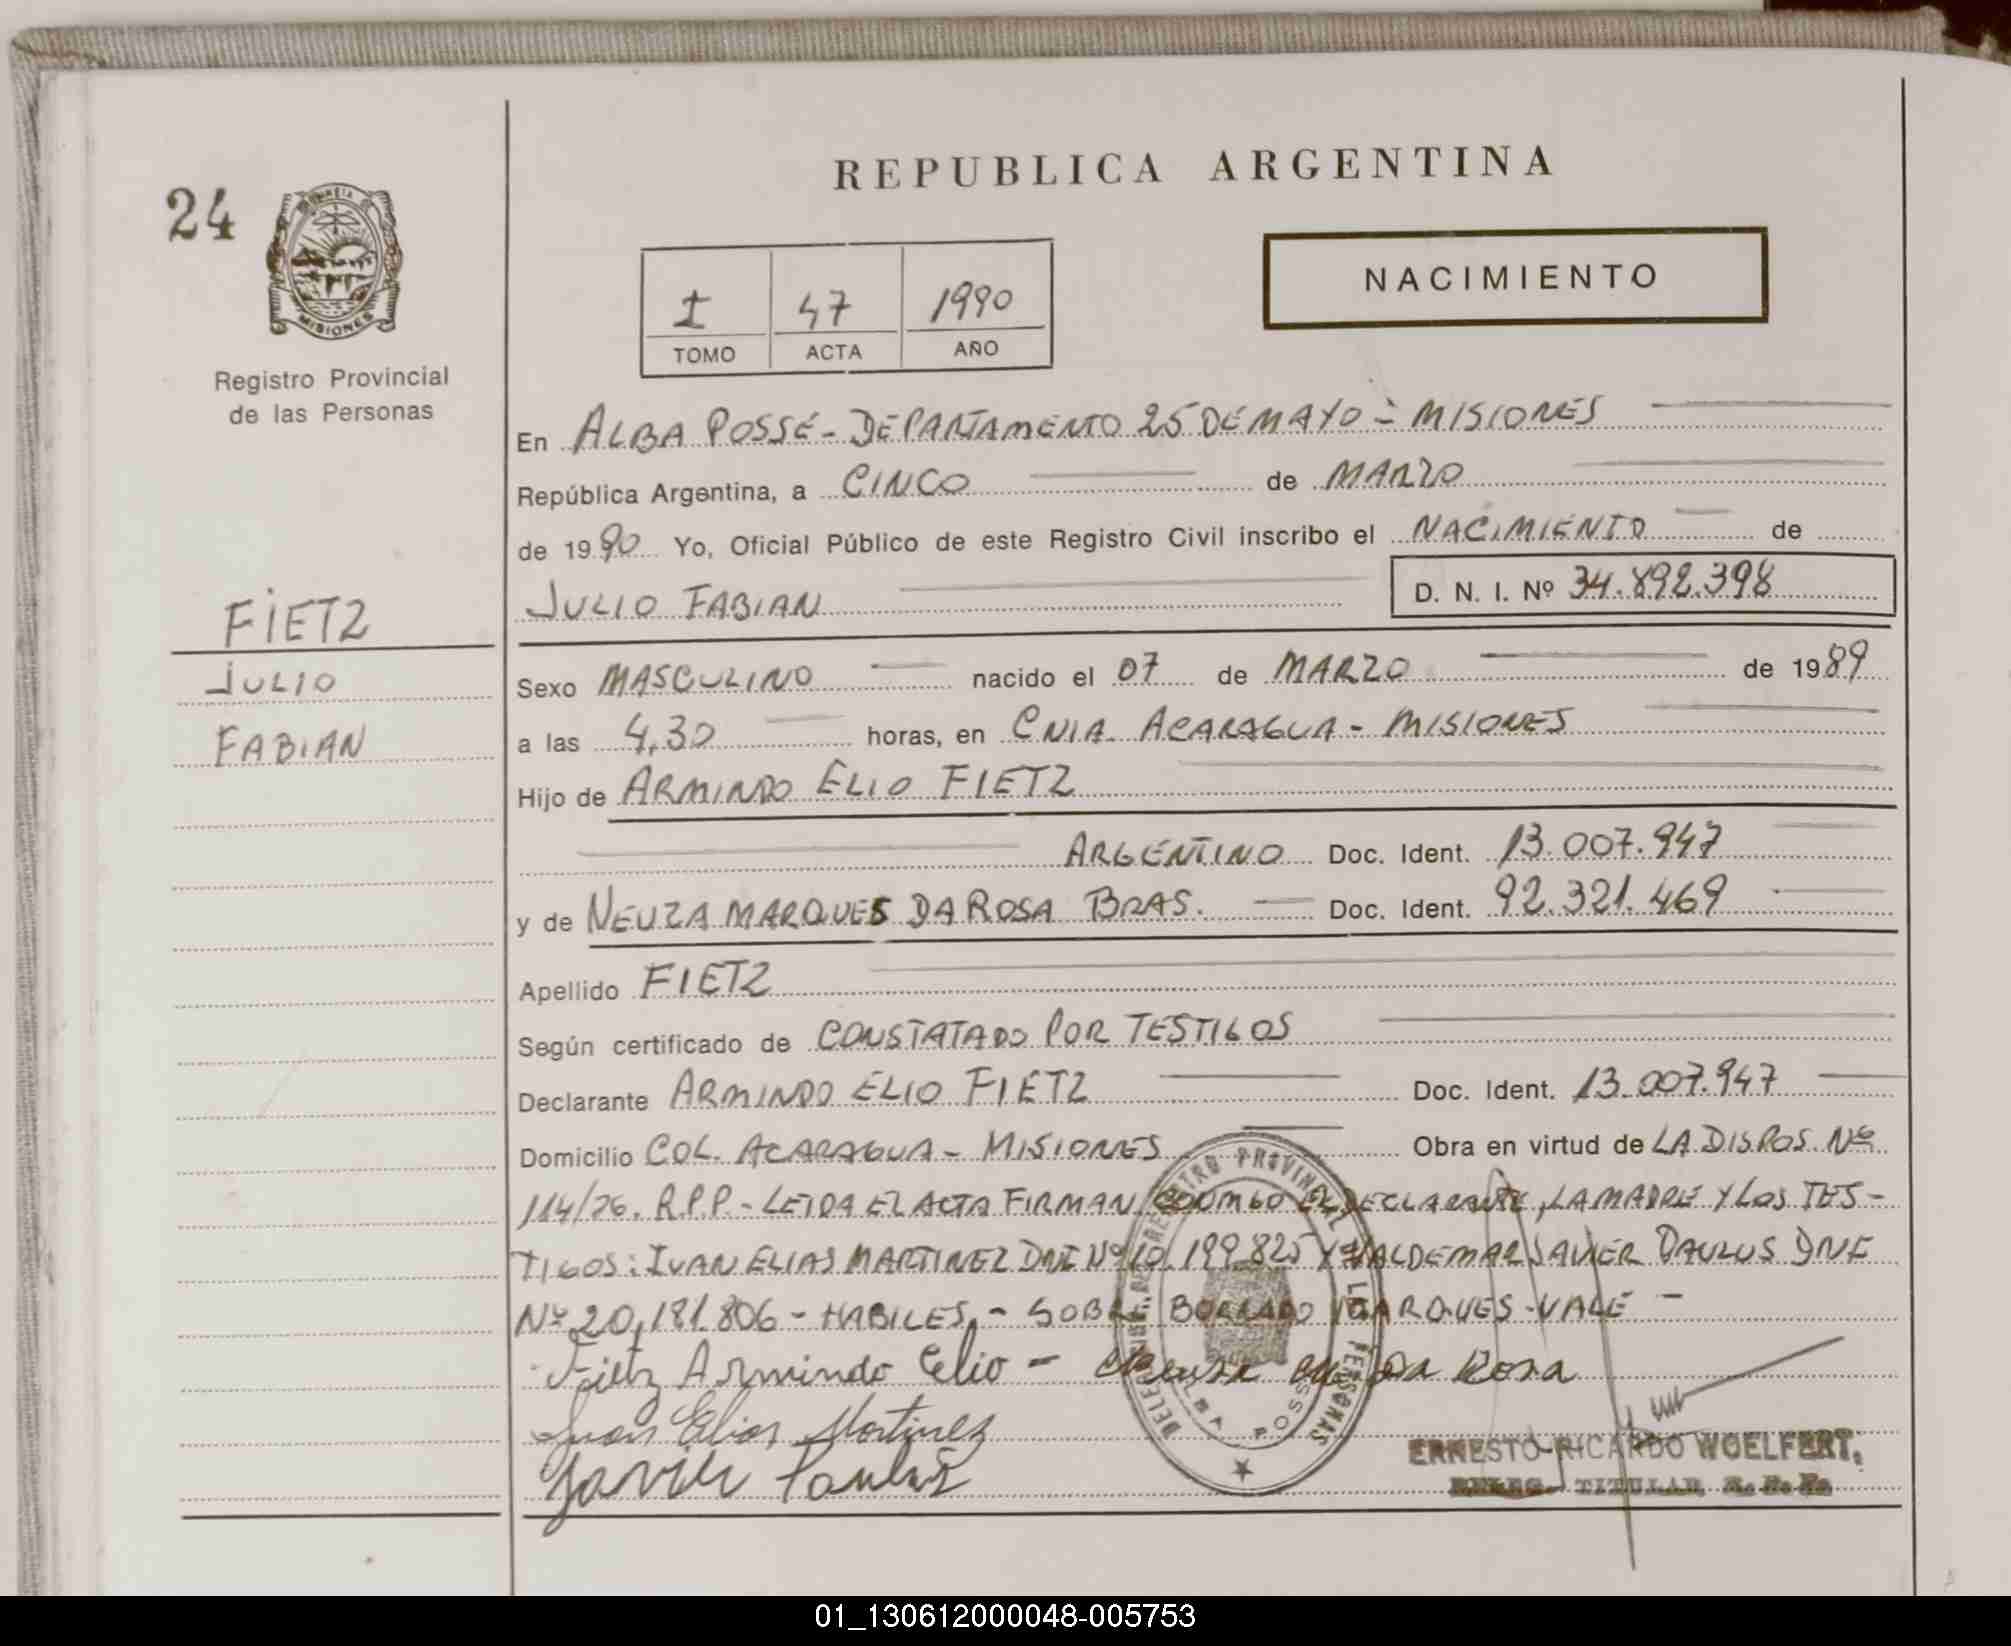 REPUBLICA ARGENTINA
24
PROVINCIA DE
MISIONES
Registro Provincial
de las Personas
NACIMIENTO
I 47 1990
TOMO ACTA AÑO
En ALBA POSSÉ - DEPARTAMENTO 25 DE MAYO - MISIONES
República Argentina, a CINCO de MARZO
de 1990 Yo, Oficial Público de este Registro Civil inscribo el NACIMIENTO de
JULIO FABIAN D. N. I. Nº 34.892.398
FIETZ
JULIO
FABIAN
Sexo MASCULINO nacido el 07 de MARZO de 1989
a las 4,30 horas, en CNIA. ACARAGUA - MISIONES
Hijo de ARMINDO ELIO FIETZ
ARGENTINO Doc. Ident. 13.007.947
y de NEUZA MARQUES DA ROSA BRAS. Doc. Ident. 92.321.469
Apellido FIETZ
Según certificado de CONSTATADO POR TESTIGOS
Declarante ARMINDO ELIO FIETZ Doc. Ident. 13.007.947
Domicilio COL. ACARAGUA - MISIONES Obra en virtud de LA DISPOS. Nº
114/76. R.P.P. - LEIDA EL ACTA FIRMAN CONMIGO EL DECLARANTE, LA MADRE Y LOS TES-
TIGOS: IVAN ELIAS MARTINEZ DNI Nº 10.199.825 Y VALDEMAR JAVIER PAULUS DNI
Nº 20.181.806 - HABILES. - SOBRE BORRADO MARQUES - VALE -
Fietz Armindo Elio - Neuza M. Da Rosa
Ivan Elias Martinez
Javier Paulus
REGISTRO PROVINCIAL DE LAS PERSONAS
ALBA POSSE
ERNESTO RICARDO WOELFERT,
DELEG. TITULAR R. P. P.
01_130612000048-005753